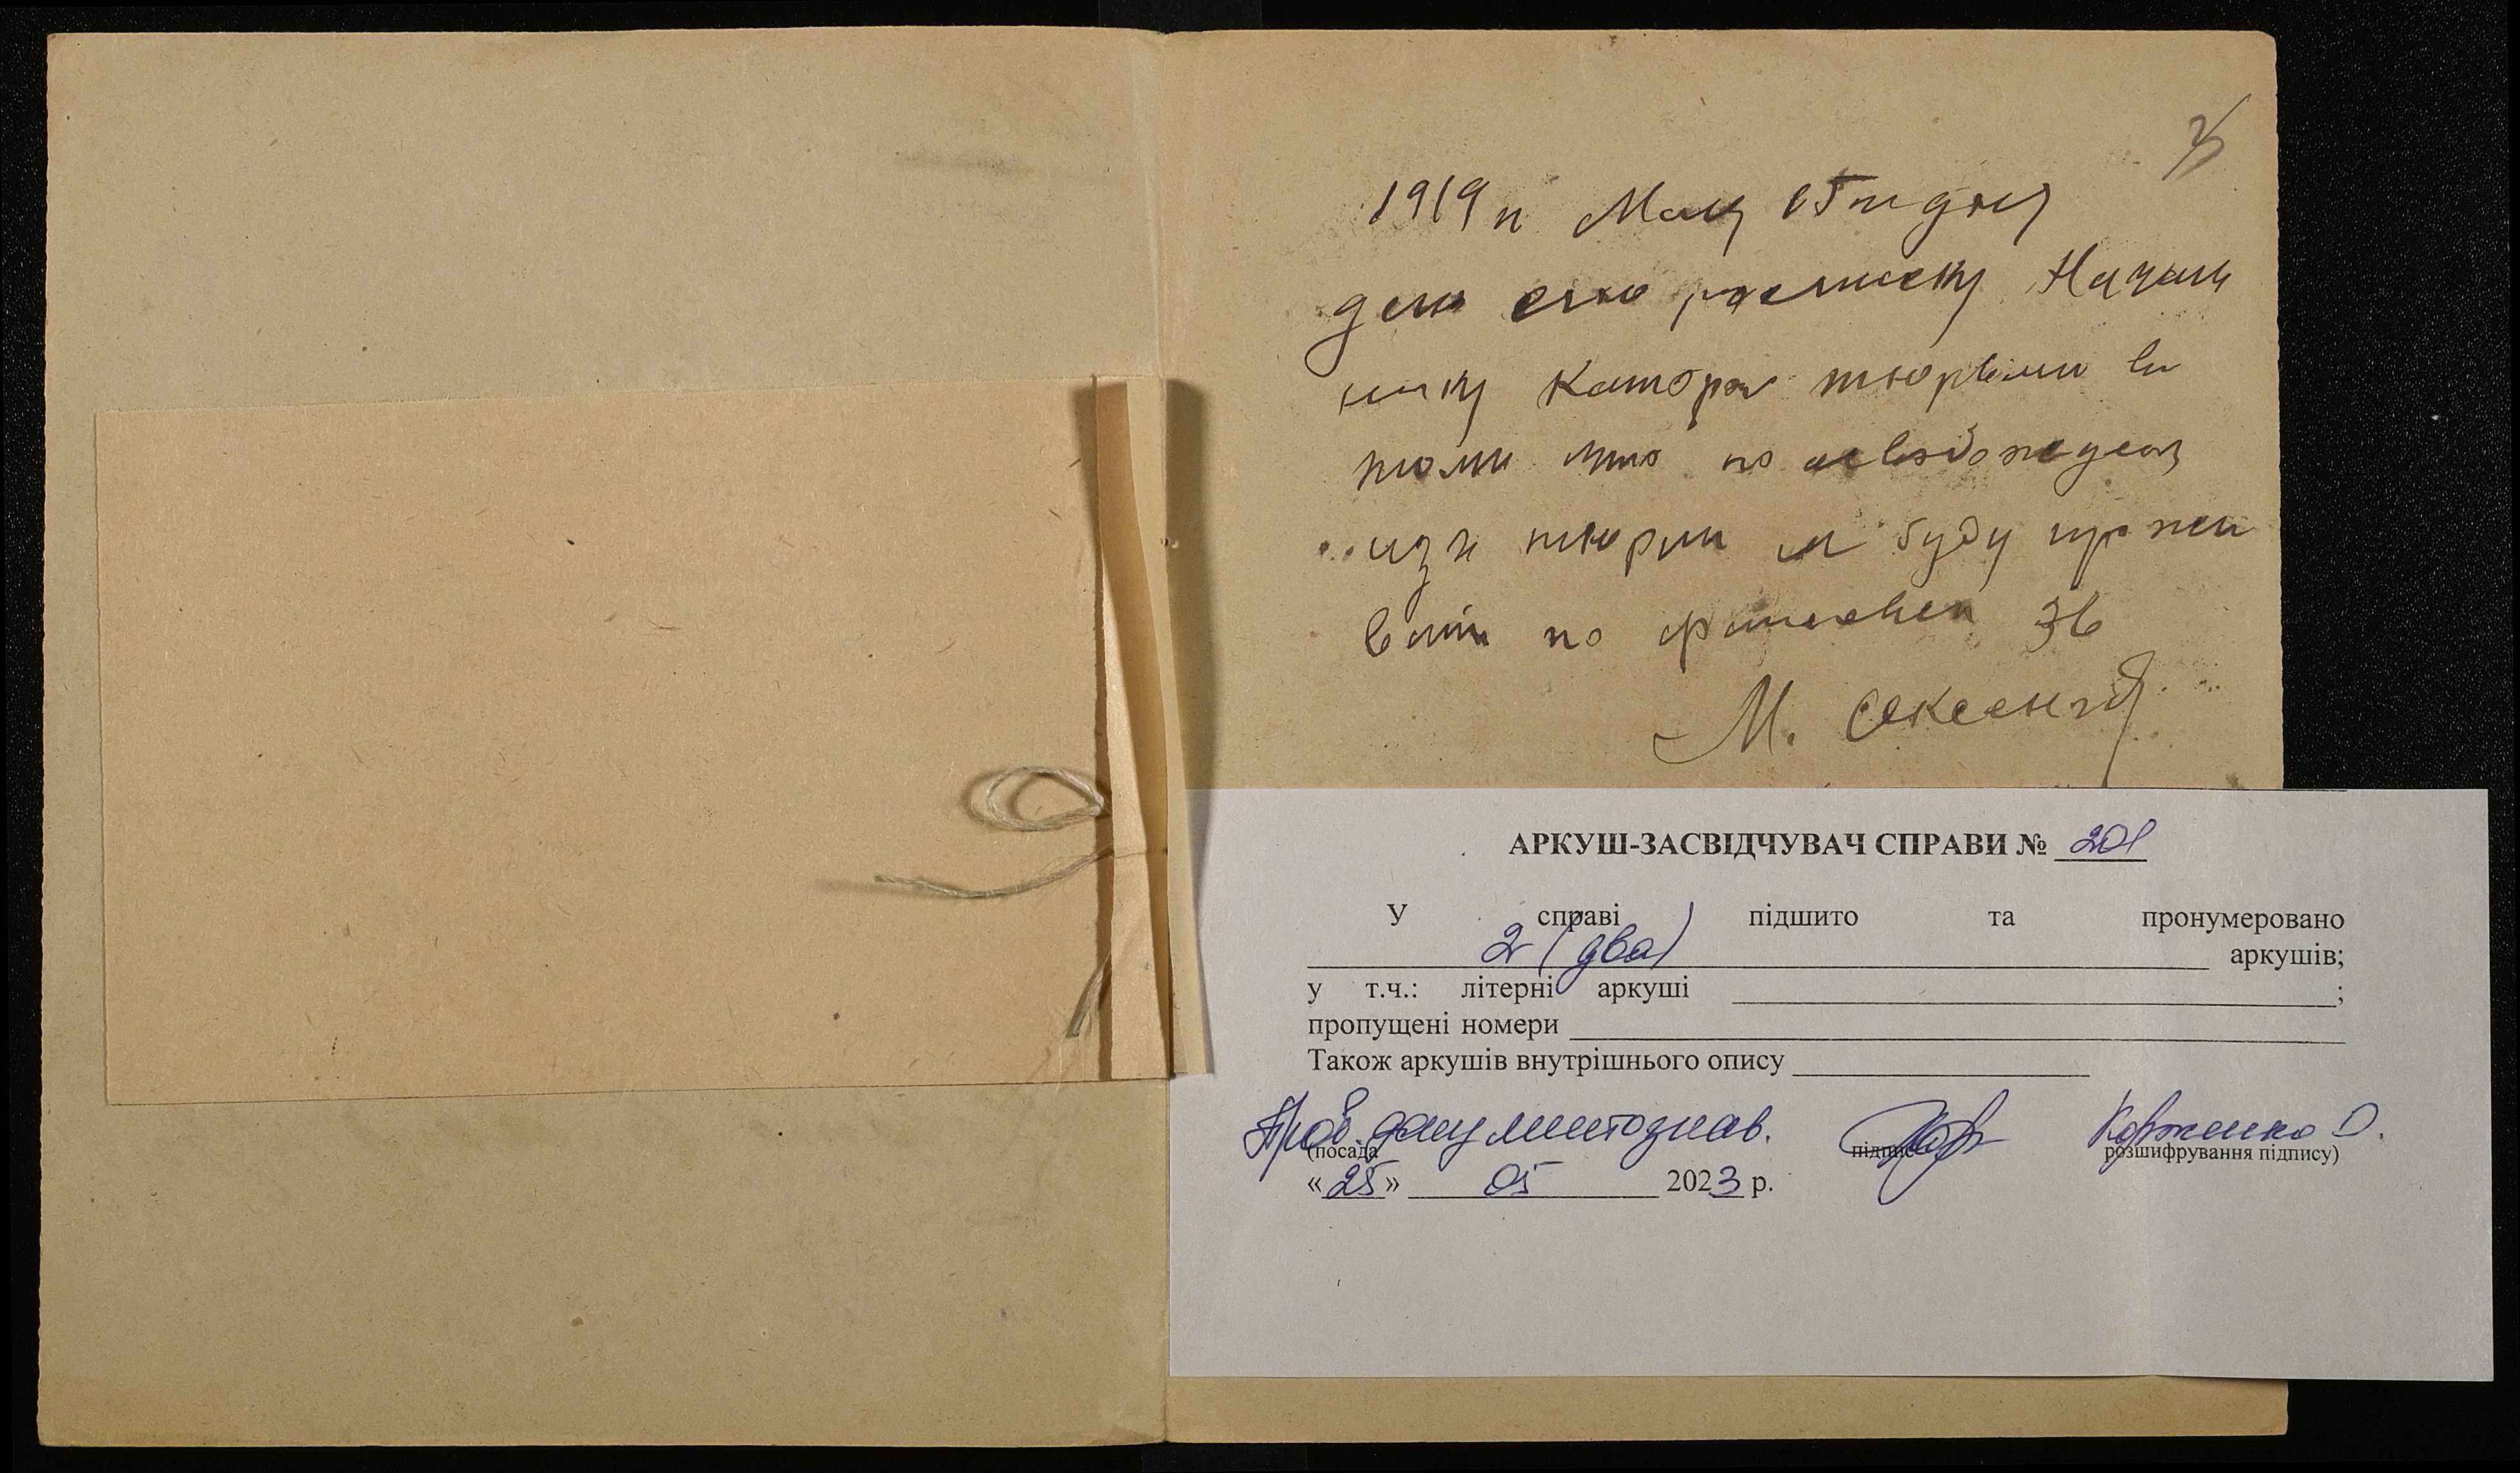 1919 г Мая 15го дня
даю сию росписку Началь
нику Каторж тюрьми в
том что по освобождении
из тюрми я буду прожи
вать по 36
М.
АРКУШ-ЗАСВІДЧУВАЧ СПРАВИ № 201
У справі підшито та пронумеровано
2 (два) аркушів;
у т.ч.: літерні аркуші ;
пропущені номери
Також аркушів внутрішнього опису
Пров. документознав. Корженко О.
(посада підпис розшифрування підпису)
« 25 » 05 2023 р.